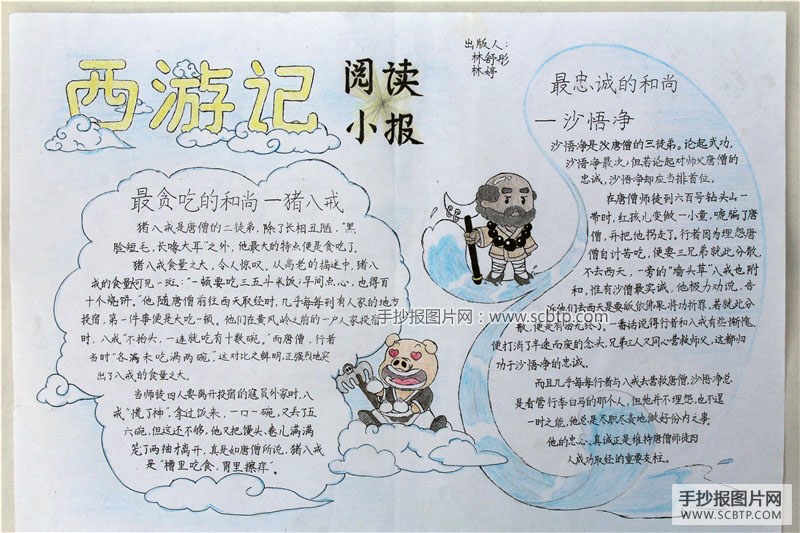 西游记
阅读
小报
出版人：
林舒彤
林婷
最贪吃的和尚一猪八戒
猪八戒是唐僧的三徒弟，除了长相丑陋，"黑
脸短毛，长喙大耳"之外，他最大的特点便是贪吃了。
猪八戒食量之大，令人惊叹，从高老的描述中，猪八
戒的食量可见一斑："一顿要吃三五斗米饭，早间点心，也得百
十个烧饼。"他随唐僧前往西天取经时，几乎每每到有人家的地方
投宿，第一件事便是大吃一顿。他们在黄风岭之前的一户人家投宿
时，八戒"不抬头，一连就吃有十数碗。"而唐僧、行者
当时"各满未吃满两碗。"这对比之鲜明，正强烈地突
出了八戒的食量之大。
当师徒四人要离开投宿的寇员外家时，八
戒"慌了神"，拿过饭来，一口一碗，又丢了五
六碗，但这还不够，他又把馒头、卷儿满满
笼了两袖才离开，真是如唐僧所说，猪八戒
是"槽里吃食，胃里擦痒"。
最忠诚的和尚
一沙悟净
沙悟净是唐僧的三徒弟。论起武功，
沙悟净最次，但若论起对师父唐僧的
忠诚，沙悟净却应当排首位。
在唐僧师徒到六百号钻头山一
带时，红孩儿变做一小童，哄骗了唐
僧，并把他拐走了。行者因为埋怨唐
僧自讨苦吃，便要三兄弟就此分散，
不去西天，一旁的"墙头草"八戒也附
和，惟有沙僧最实诚，他极力劝说，告
诉他们去西天是要皈依佛果，将功折罪，若就此分
散，便是有始无终了。一番话说得行者和八戒有些惭愧，
便打消了半途而废的念头，兄弟三人又同心营救师父，这都归
功于沙悟净的忠诚。
而且几乎每每行者与八戒去营救唐僧，沙悟净总
是看管行李白马的那个人，但他并不埋怨，也不逞
一时之能，他总是尽职尽责地做好份内之事。
他的忠心、真诚正是维持唐僧师徒四
人成功取经的重要支柱。
手抄报图片网：www.scbtp.com
手抄报图片网
WWW.SCBTP.COM